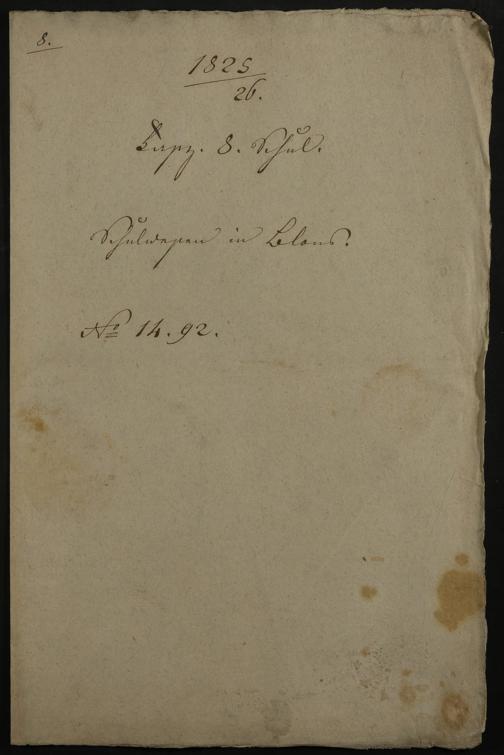 8.
1825
26.
Fasz. 8. Schul.
Schulwesen in Blons.
No 14. 92.